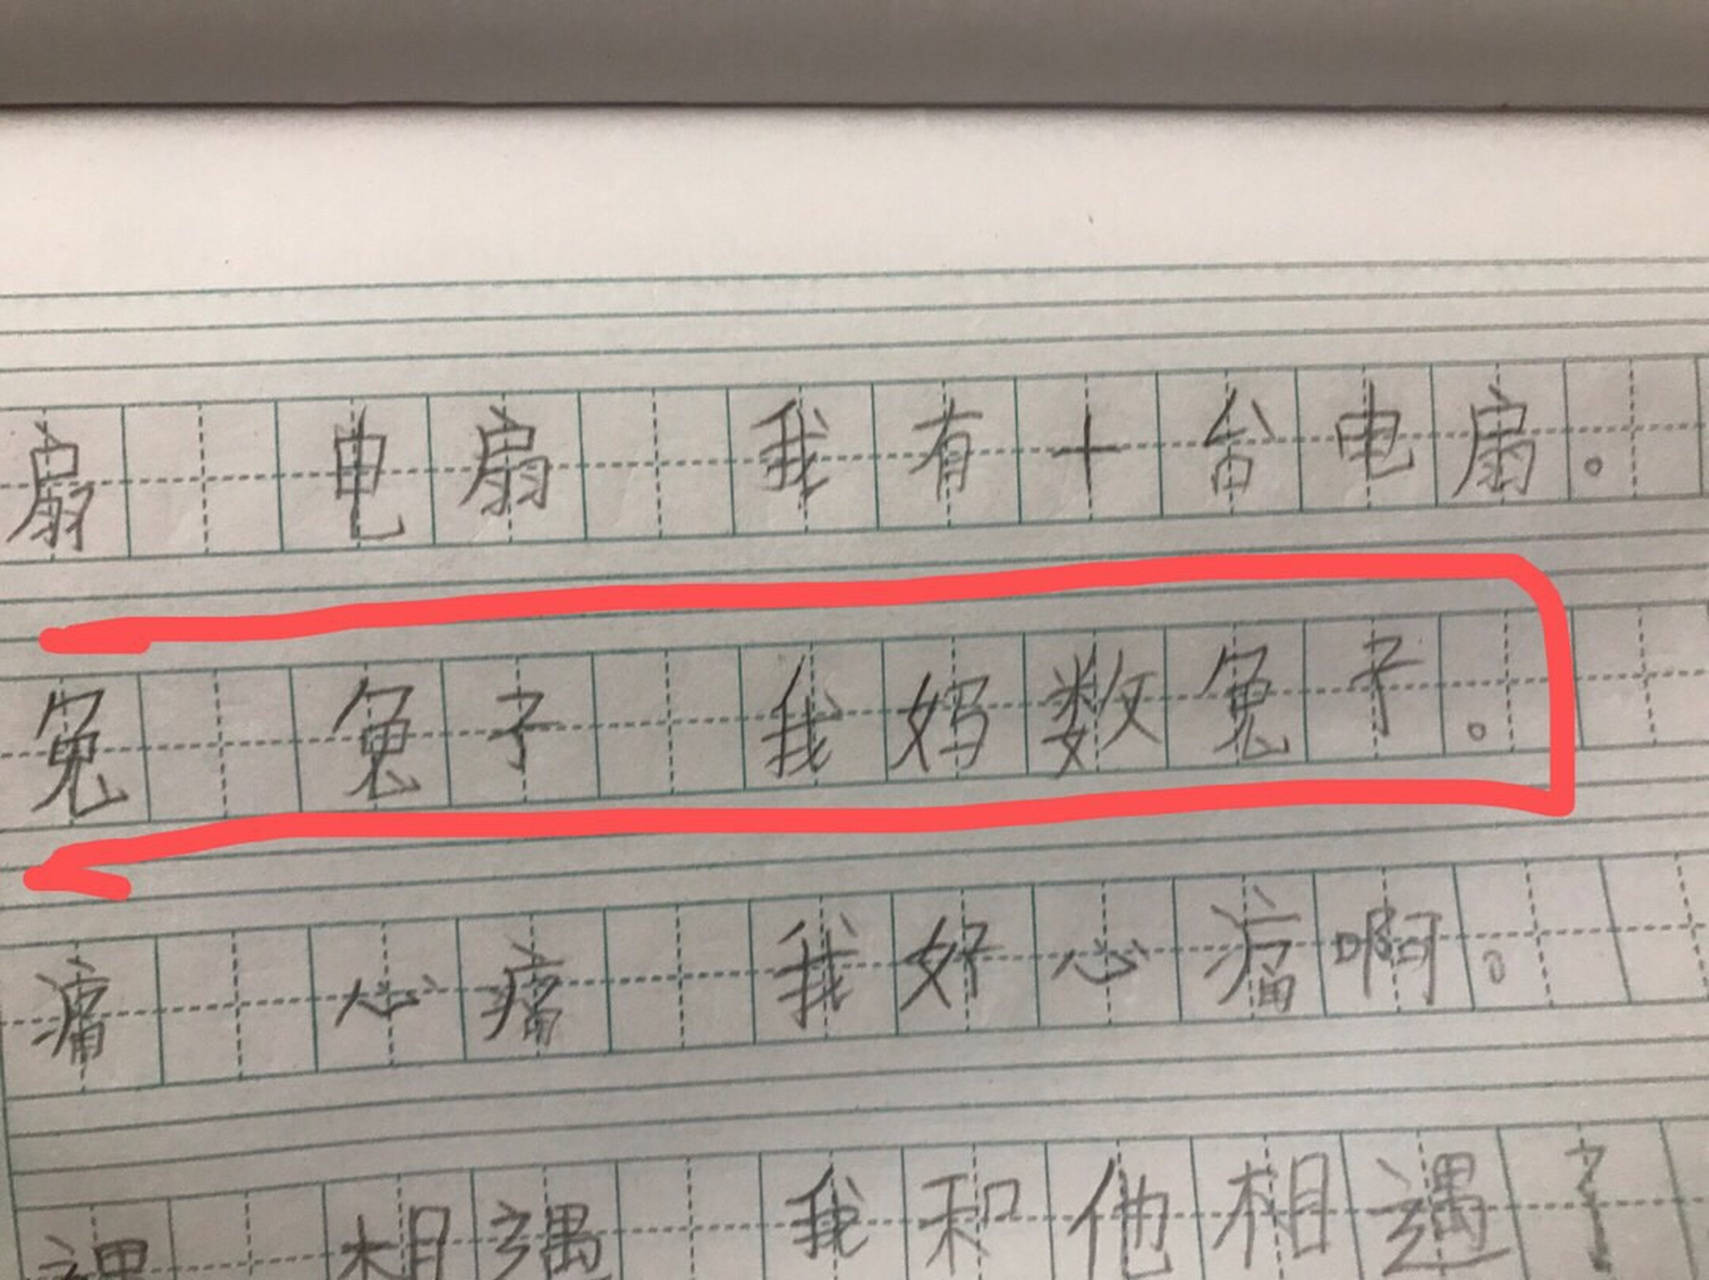 扇 电扇 我有十台电扇。
兔 兔子 我妈数兔子。
痛 心痛 我好心痛啊。
遇 相遇 我和他相遇了